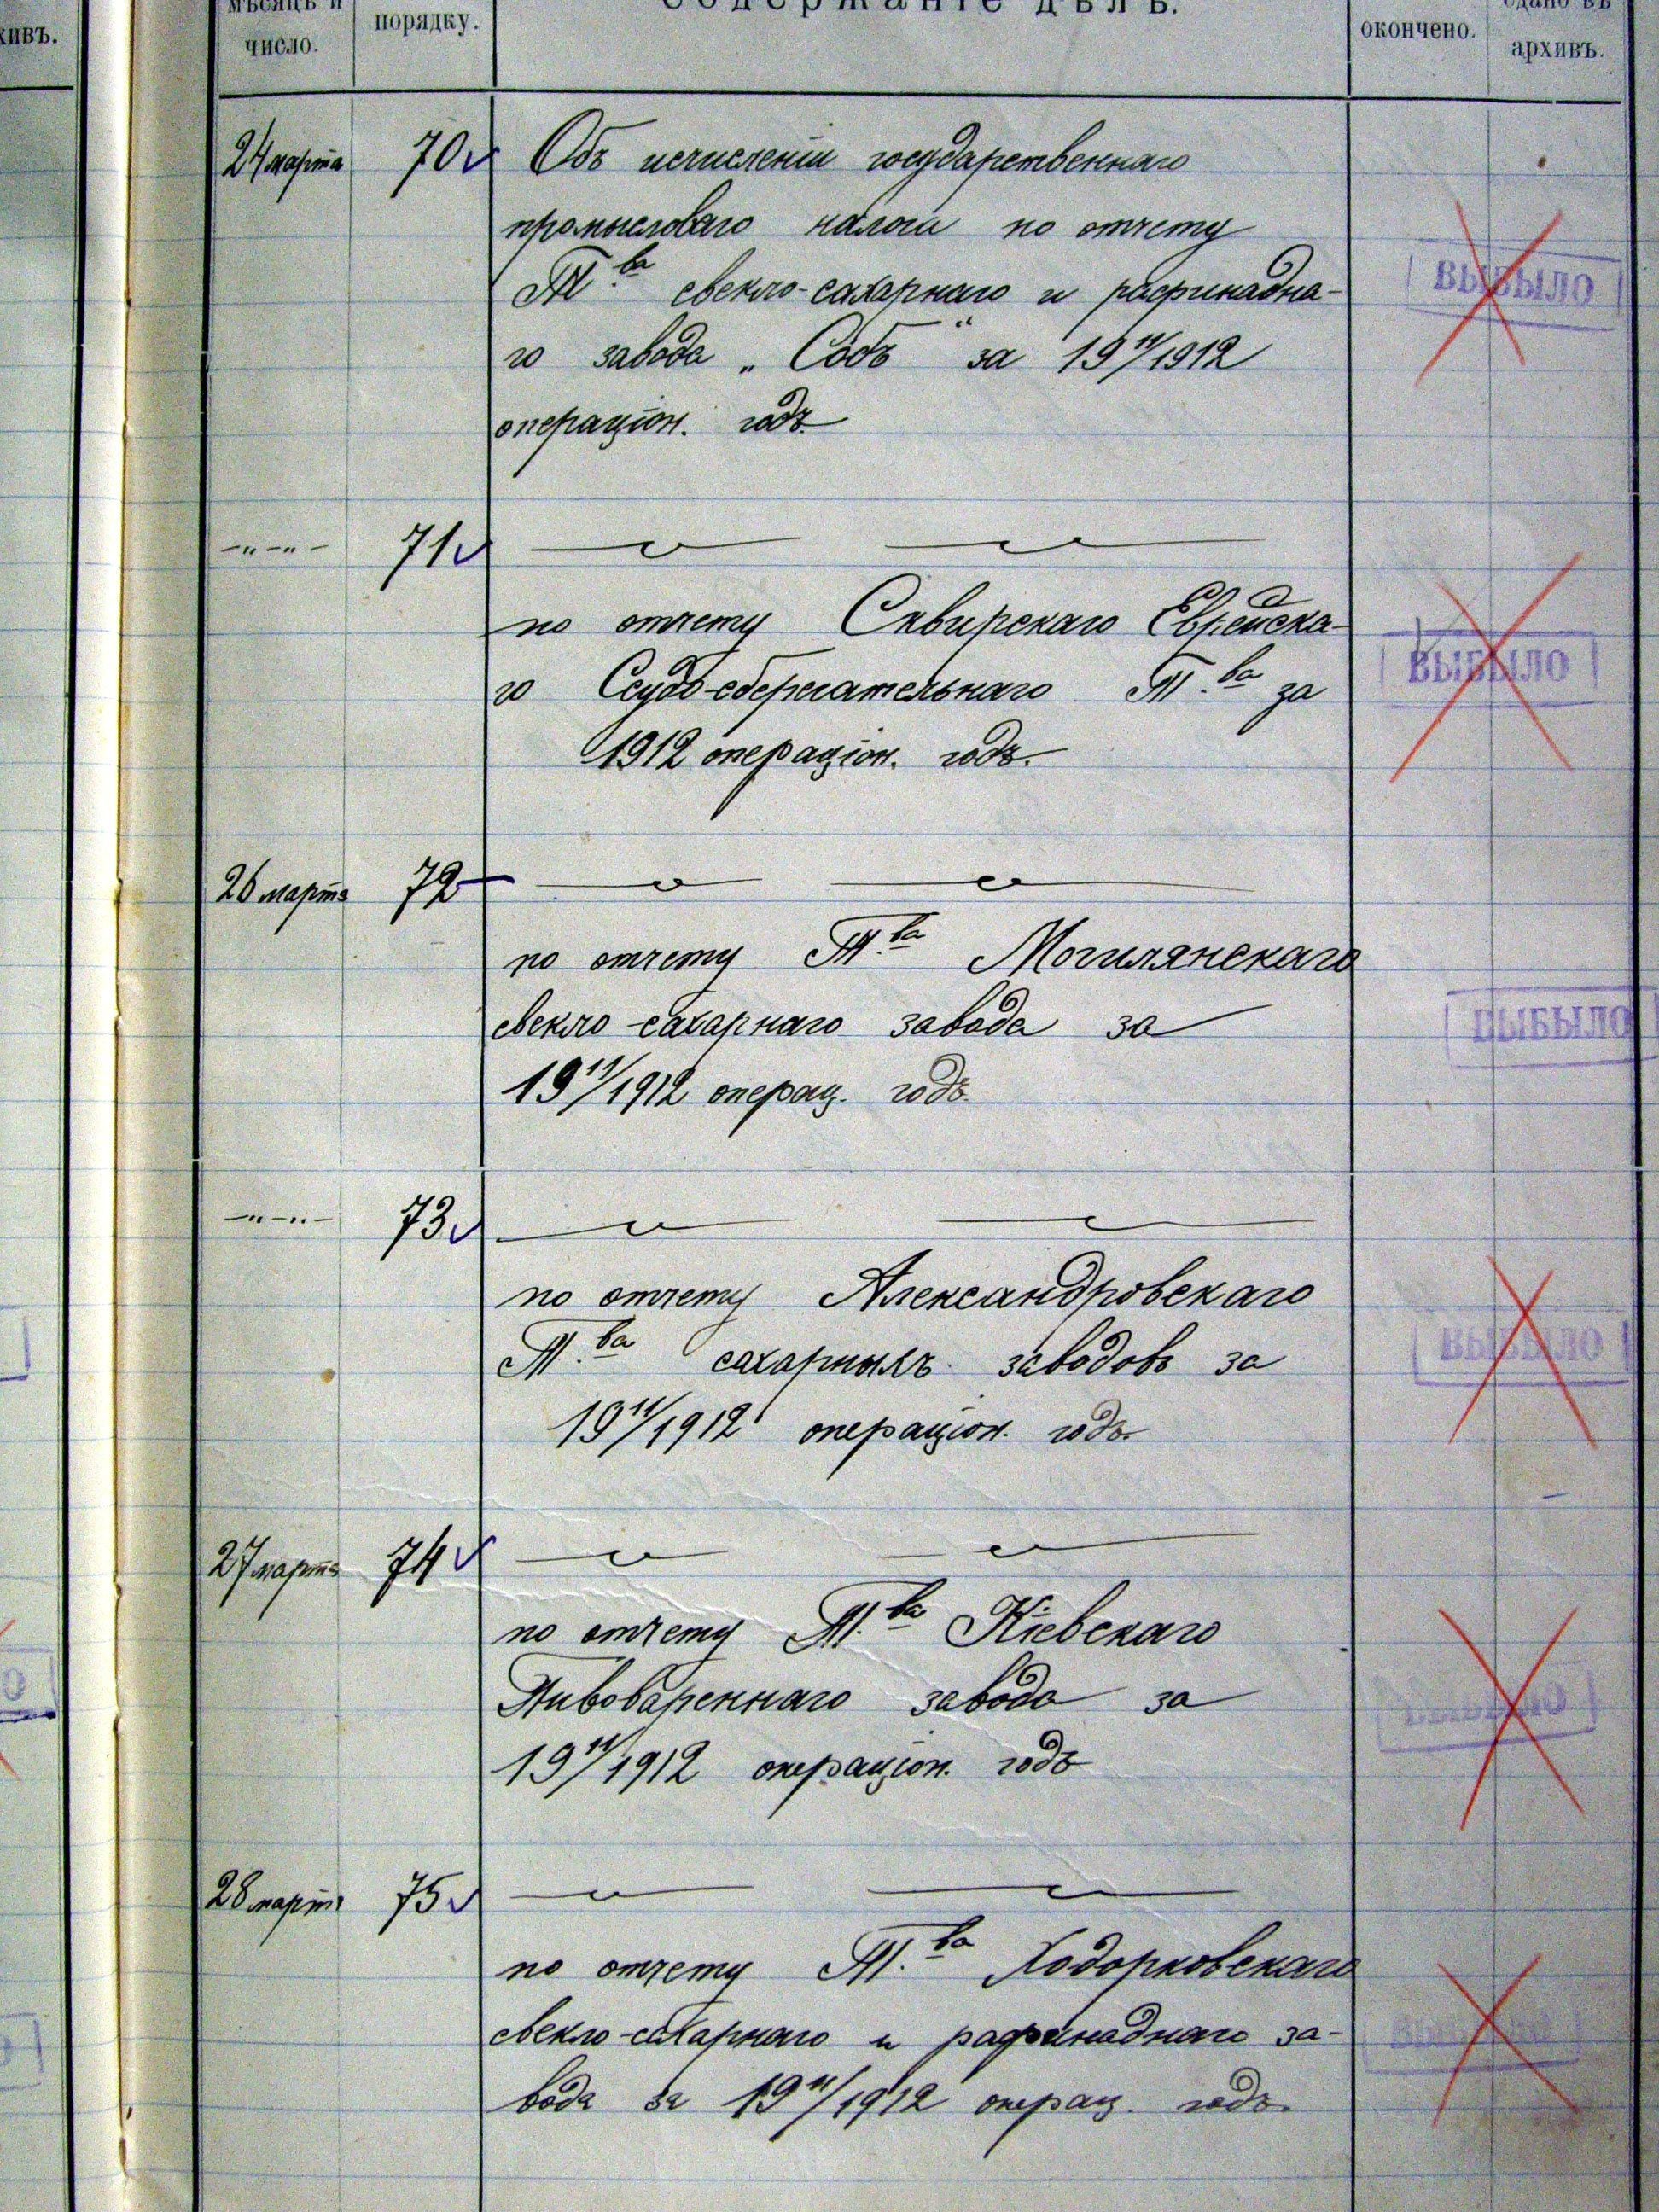 ивъ.
мѣсяцъ и
число.
порядку.
Содержаніе дѣлъ.
окончено.
сдано въ
архивъ.
24 марта 70 Объ исчисленіи государственнаго
промысловаго налога по отчету
Т.ва свекло-сахарнаго и рафинадна-
го завода „Собъ“ за 1911/1912
операціон. годъ.
ВЫБЫЛО
-"-"- 71
по отчету Сквирскаго Еврейска-
го Ссудо-сберегательнаго Т.ва за
1912 операціон. годъ.
ВЫБЫЛО
26 марта 72
по отчету Т.ва Могилянскаго
свекло-сахарнаго завода за
1911/1912 операц. годъ.
ВЫБЫЛО
-"-"- 73
по отчету Александровскаго
Т.ва сахарныхъ заводовъ за
1911/1912 операціон. годъ.
ВЫБЫЛО
27 марта 74
по отчету Т.ва Кіевскаго
Пивовареннаго завода за
1911/1912 операціон. годъ
ВЫБЫЛО
28 марта 75
по отчету Т.ва Ходорковскаго
свекло-сахарнаго и рафинаднаго за-
вода за 1911/1912 операц. годъ.
ВЫБЫЛО